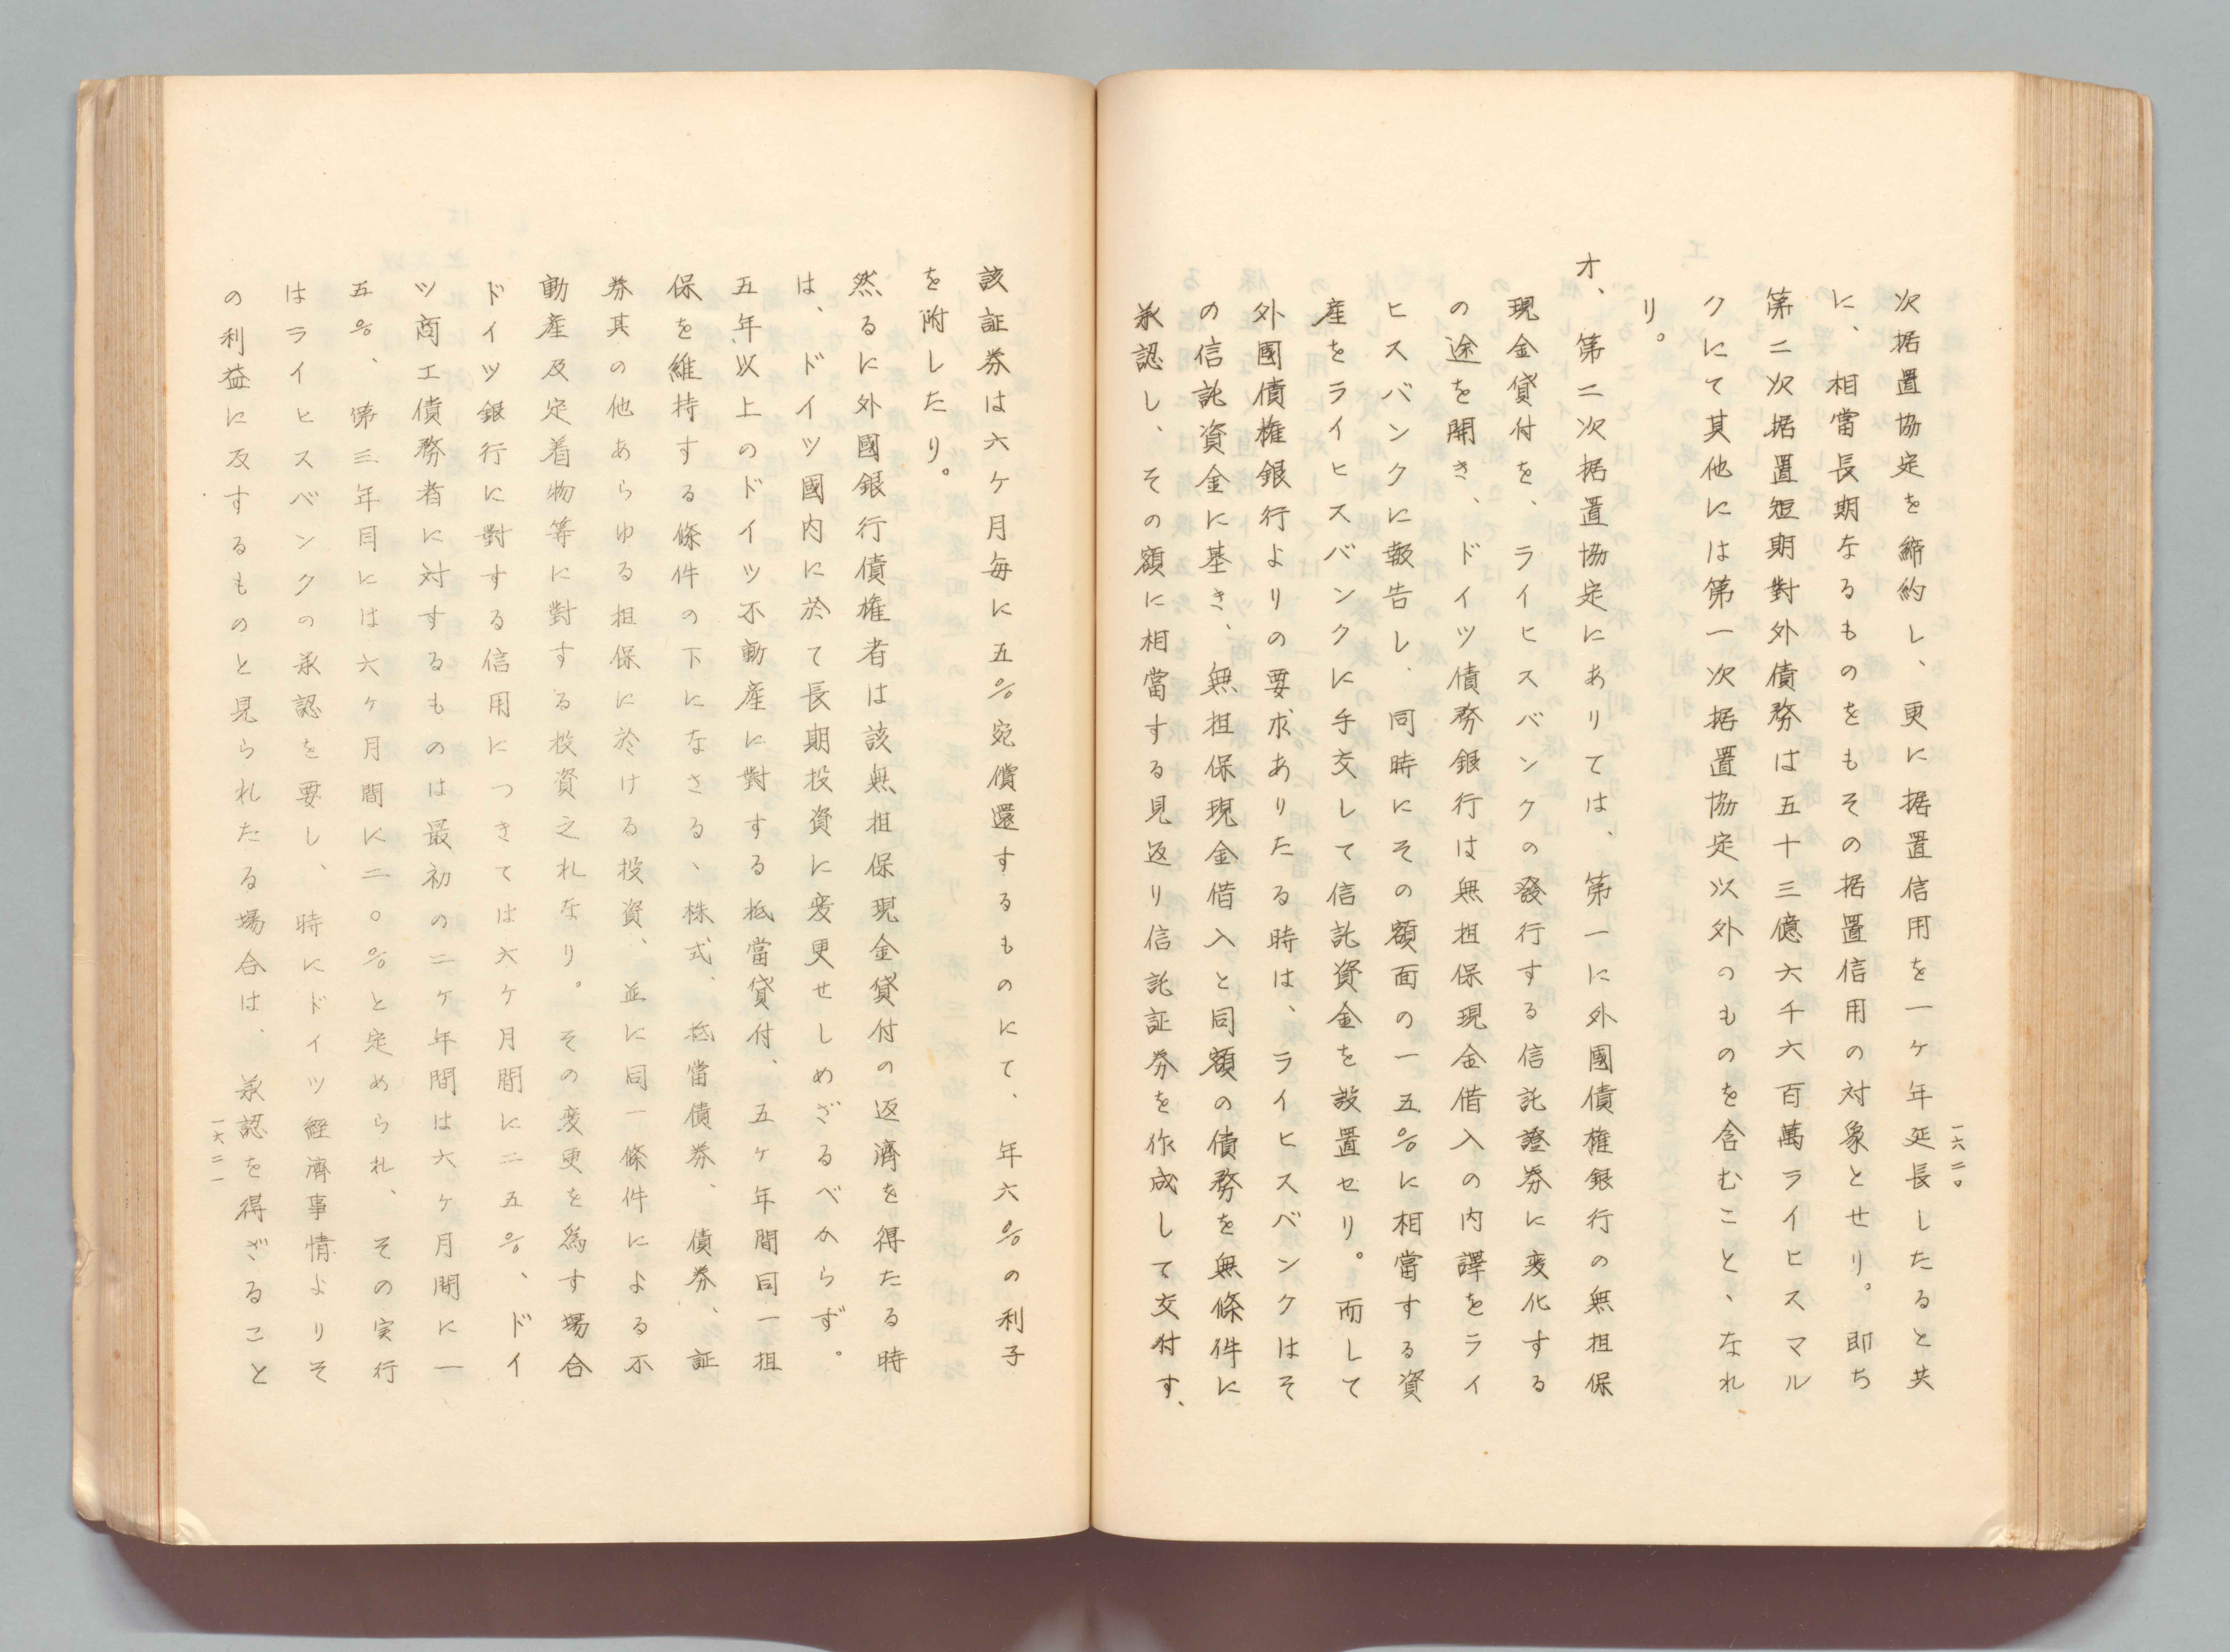 次据置協定を締約し、更に据置信用を一ヶ年延長したると共
に、相當長期なるものをもその据置信用の対象とせり。即ち
第二次据置短期對外債務は五十三億六千六百萬ライヒスマル
クにて其他には第一次据置協定以外のものを含むこと、なれ
り。
オ、第二次据置協定にありては、第一に外國債権銀行の無担保
現金貸付を、ライヒスバンクの發行する信託證券に変化する
の途を開き、ドイツ債務銀行は無担保現金借入の内譯をライ
ヒスバンクに報告し、同時にその額面の一五%に相當する資
産をライヒスバンクに手交して信託資金を設置せり。而して
外國債権銀行よりの要求ありたる時は、ライヒスベンクはそ
の信託資金に基き、無担保現金借入と同額の債務を無條件に
承認し、その額に相當する見返り信託証券を作成して交付す、
一六二〇
該証券は六ヶ月毎に五%宛償還するものにて、年六%の利子
を附したり。
然るに外國銀行債権者は該無担保現金貸付の返濟を得たる時
は、ドイツ國内に於て長期投資に変更せしめざるべからず。
五年以上のドイツ不動産に對する抵當貸付、五ヶ年間同一担
保を維持する條件の下になさる、株式、抵當債券、債券、証
券其の他あらゆる担保に於ける投資、並に同一條件による不
動産及定着物等に對する投資之れなり。その変更を為す場合
ドイツ銀行に對する信用につきては六ヶ月間に二五%、ドイ
ツ商工債務者に対するものは最初の二ヶ年間は六ヶ月間に一
五%、第三年目には六ヶ月間に二〇%と定められ、その実行
はライヒスベンクの承認を要し、時にドイツ経濟事情よりそ
の利益に反するものと見られたる場合は、承認を得ざること
一六二一